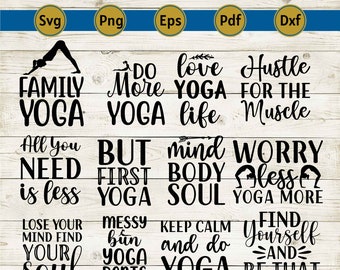 Svg Png Eps Pdf Dxf
FAMILY
YOGA
DO
More
YOGA
love
YOGA
life
Hustle
FOR THE
Muscle
All you
NEED
is less
BUT
FIRST
YOGA
mind
BODY
SOUL
WORRY
less
YOGA MORE
LOSE YOUR
MIND FIND
YOUR
Soul
messy
bun
YOGA
PANTS
KEEP CALM
and do
YOGA
FIND
Yourself
AND
BE THAT